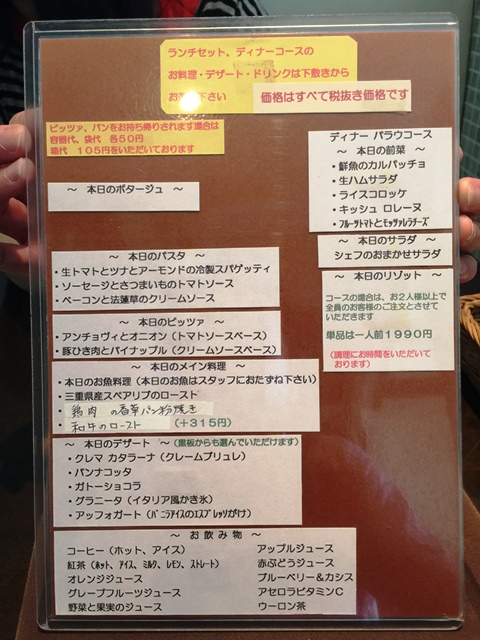 ランチセット、ディナーコースの
お料理・デザート・ドリンクは下敷きから
お 下さい
価格はすべて税抜き価格です
ピッツァ、パンをお持ち帰りされます場合は
容器代、袋代 各50円
箱代 105円をいただいております
～ 本日のポタージュ ～
ディナー パラウコース
～ 本日の前菜 ～
・鮮魚のカルパッチョ
・生ハムサラダ
・ライスコロッケ
・キッシュ ロレーヌ
・フルーツトマトとモッツァレラチーズ
～ 本日のサラダ ～
シェフのおまかせサラダ
～ 本日のリゾット ～
コースの場合は、お2人様以上で
全員のお客様のご注文とさせて
いただきます
単品は一人前1990円
(調理にお時間をいただいて
おります)
～ 本日のパスタ ～
・生トマトとツナとアーモンドの冷製スパゲッティ
・ソーセージとさつまいものトマトソース
・ベーコンと法蓮草のクリームソース
～ 本日のピッツァ ～
・アンチョヴィとオニオン(トマトソースベース)
・豚ひき肉とパイナップル(クリームソースベース)
～ 本日のメイン料理 ～
・本日のお魚料理(本日のお魚はスタッフにおたずね下さい)
・三重県産スペアリブのロースト
・鶏肉 の香草パン粉焼き
・和牛のロースト (+315円)
～ 本日のデザート ～(黒板からも選んでいただけます)
・クレマ カタラーナ(クレームブリュレ)
・パンナコッタ
・ガトーショコラ
・グラニータ(イタリア風かき氷)
・アッフォガート(バニラアイスのエスプレッソがけ)
～ お飲み物 ～
コーヒー(ホット、アイス)
紅茶(ホット、アイス、ミルク、レモン、ストレート)
オレンジジュース
グレープフルーツジュース
野菜と果実のジュース
アップルジュース
赤ぶどうジュース
ブルーベリー&カシス
アセロラビタミンC
ウーロン茶